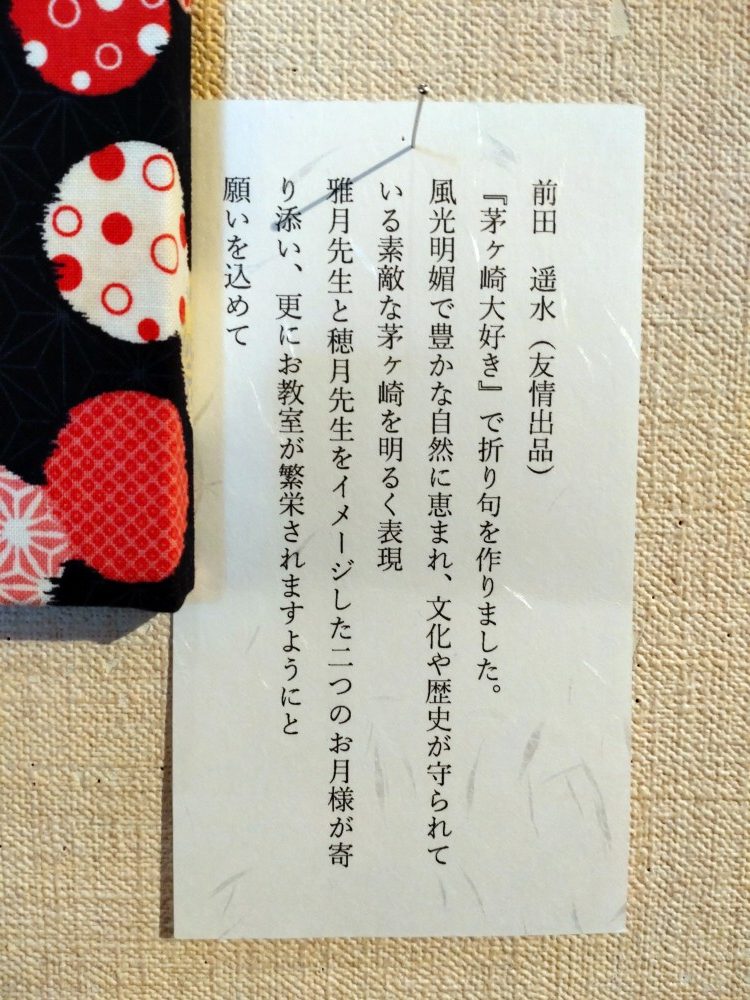 前田　遥水（友情出品）
『茅ヶ崎大好き』で折り句を作りました。
風光明媚で豊かな自然に恵まれ、文化や歴史が守られて
いる素敵な茅ヶ崎を明るく表現
雅月先生と穂月先生をイメージした二つのお月様が寄
り添い、更にお教室が繁栄されますようにと
願いを込めて